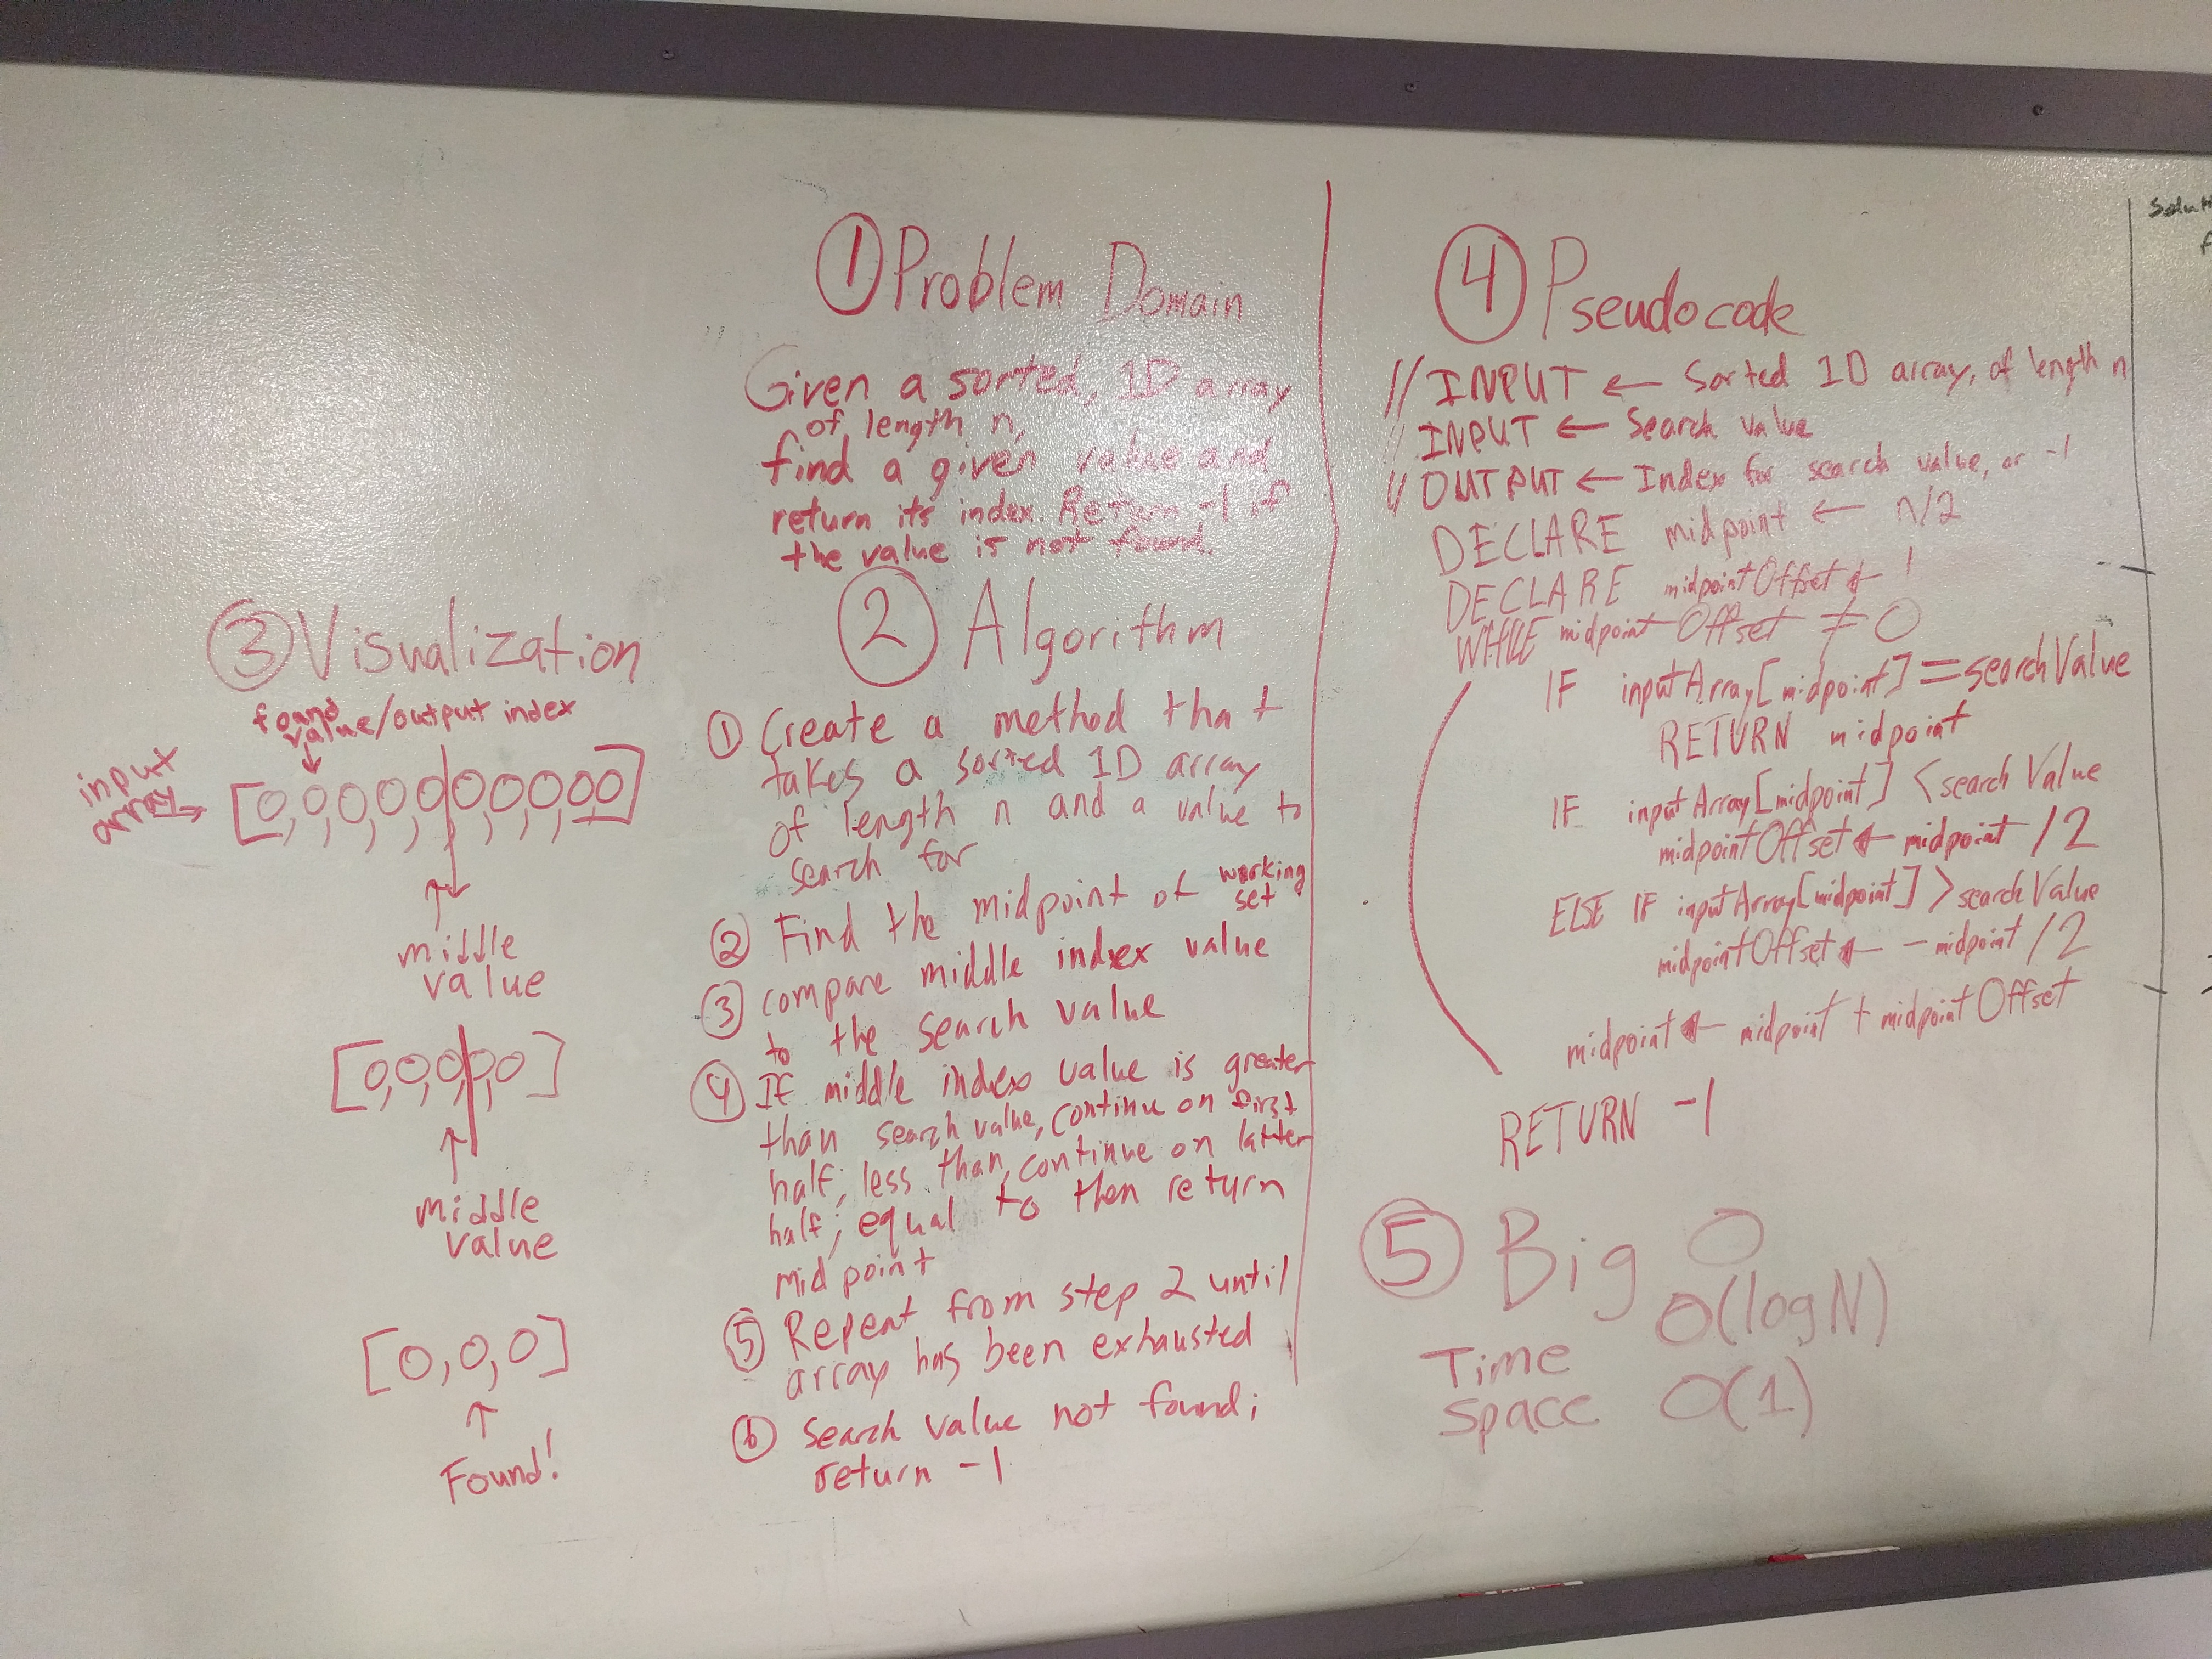 ① Problem Domain
Given a sorted, 1D array
of length n,
find a given value and
return its index. Return -1 if
the value is not found.
② Algorithm
① Create a method that
takes a sorted 1D array
of length n and a value to
search for
② Find the midpoint of working
set
③ compare middle index value
to the search value
④ If middle index value is greater
than search value, continue on first
half; less than, continue on latter
half; equal to then return
mid point
⑤ Repeat from step 2 until
array has been exhausted
⑥ Search value not found;
return -1
③ Visualization
found
value/output index
input
array
[0,0,0,0,0,0,0,0,0,0]
middle
value
[0,0,0,0,0]
middle
value
[0,0,0]
Found!
④ Pseudocode
// INPUT ← Sorted 1D array, of length n
// INPUT ← Search value
// OUTPUT ← Index for search value, or -1
DECLARE midpoint ← n/2
DECLARE midpointOffset ← 1
WHILE midpointOffset ≠ 0
IF inputArray[midpoint] = searchValue
RETURN midpoint
IF inputArray[midpoint] < searchValue
midpointOffset ← midpoint / 2
ELSE IF inputArray[midpoint] > searchValue
midpointOffset ← - midpoint / 2
midpoint ← midpoint + midpointOffset
RETURN -1
⑤ Big O
Time O(logN)
Space O(1)